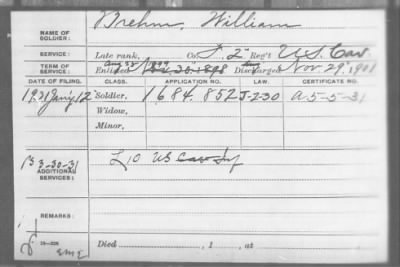 Brehm, William
NAME OF SOLDIER:
SERVICE: Late rank, Co. F, 2" Reg't U.S. Cav
TERM OF SERVICE: Enlisted Aug 1899 Discharged Nov. 29", 1901
DATE OF FILING. CLASS. APPLICATION NO. LAW. CERTIFICATE NO.
1931 Jan'y 12" Soldier, 1684.852 J-2-30 A-5-5-31
Widow,
Minor,
3-30-31 L 10 US Cav Inf
ADDITIONAL SERVICES:
REMARKS:
Died , 1 , at